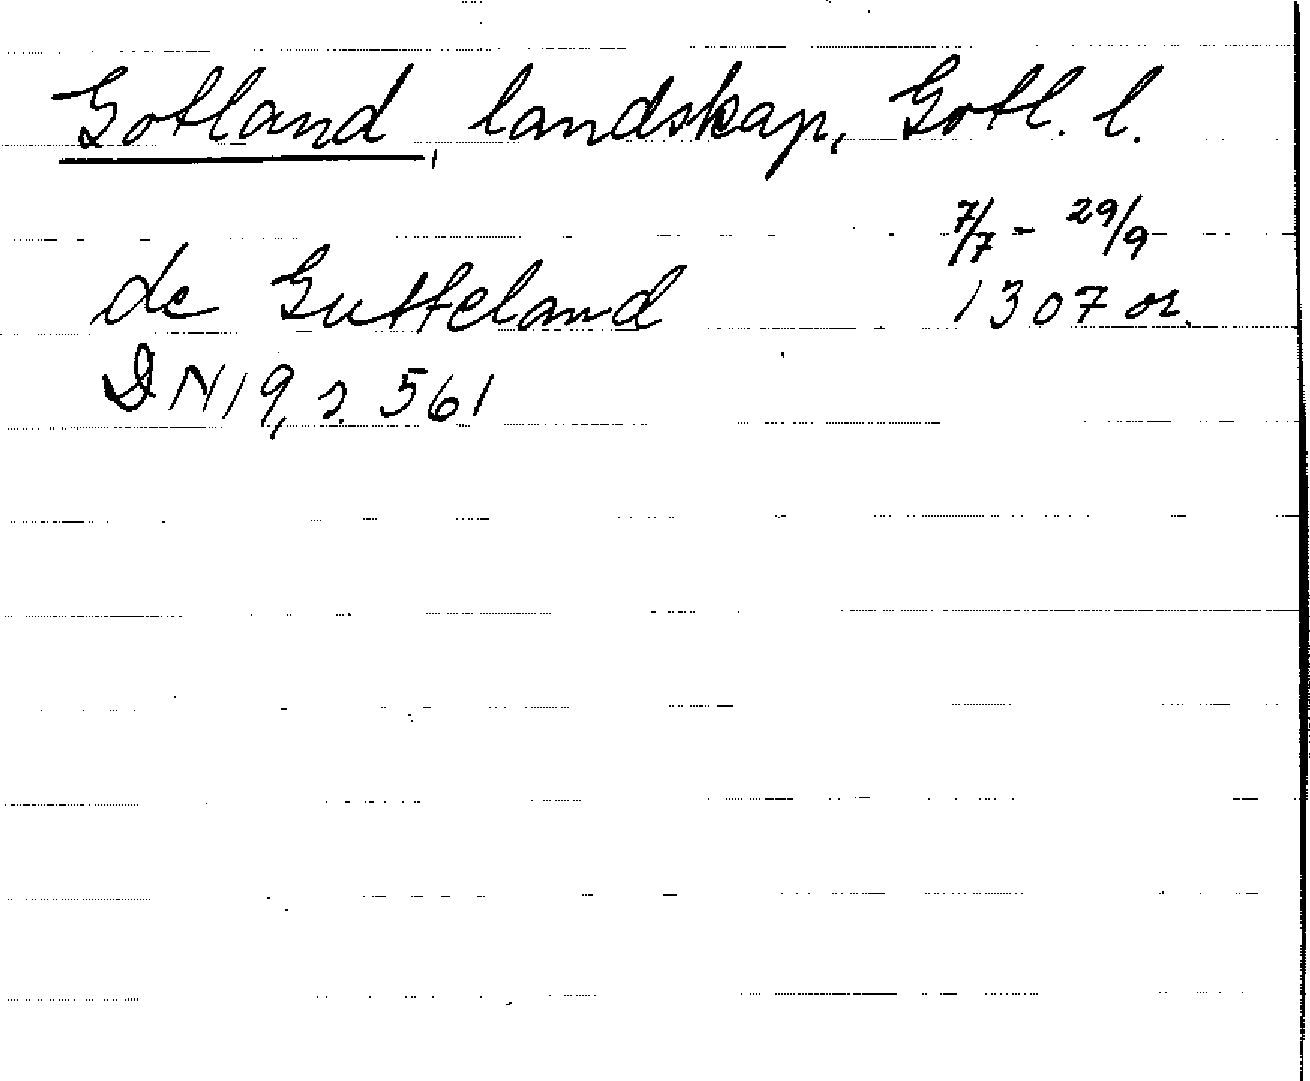 Gotland, landskap, Gotl. l.
7/7 - 29/9
de Gutteland 1307 or.
DN 19, s. 561